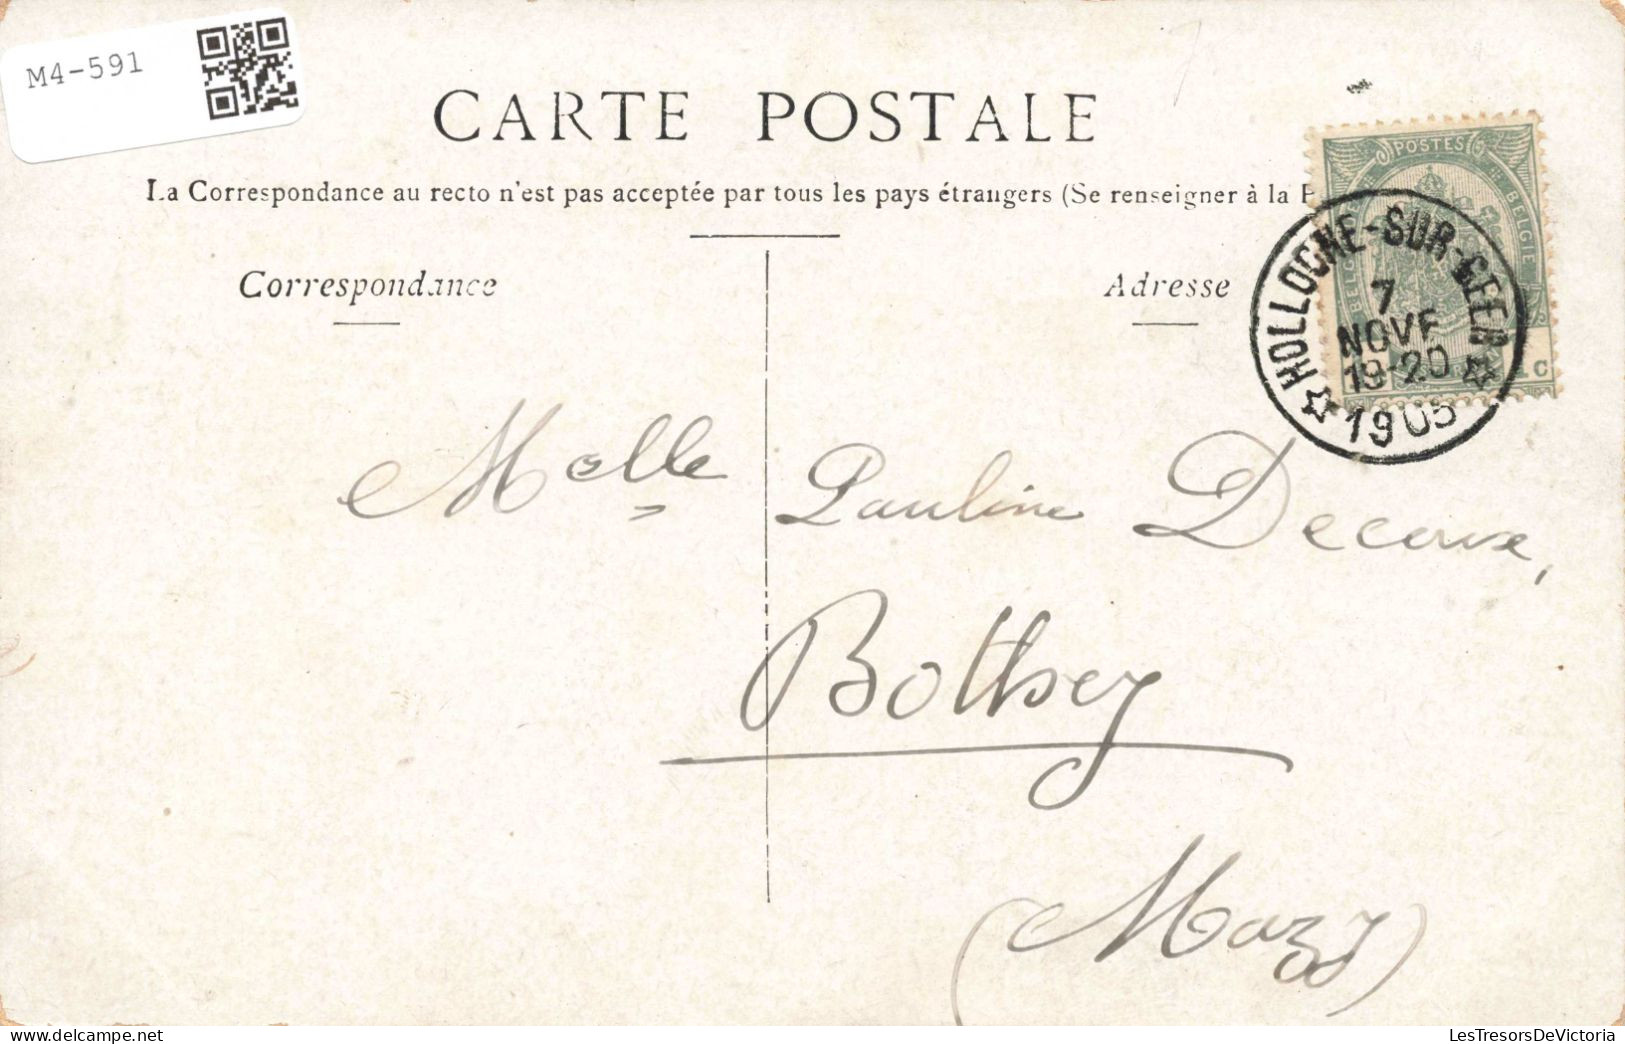 M4-591
CARTE POSTALE
La Correspondance au recto n'est pas acceptée par tous les pays étrangers (Se renseigner à la P
Correspondance
Adresse
POSTES
HOLLOGNE-SUR-GEER
7
NOVE
19-20
1905
Melle Pauline
Bothey
(Mazy)
LesTresorsDeVictoria